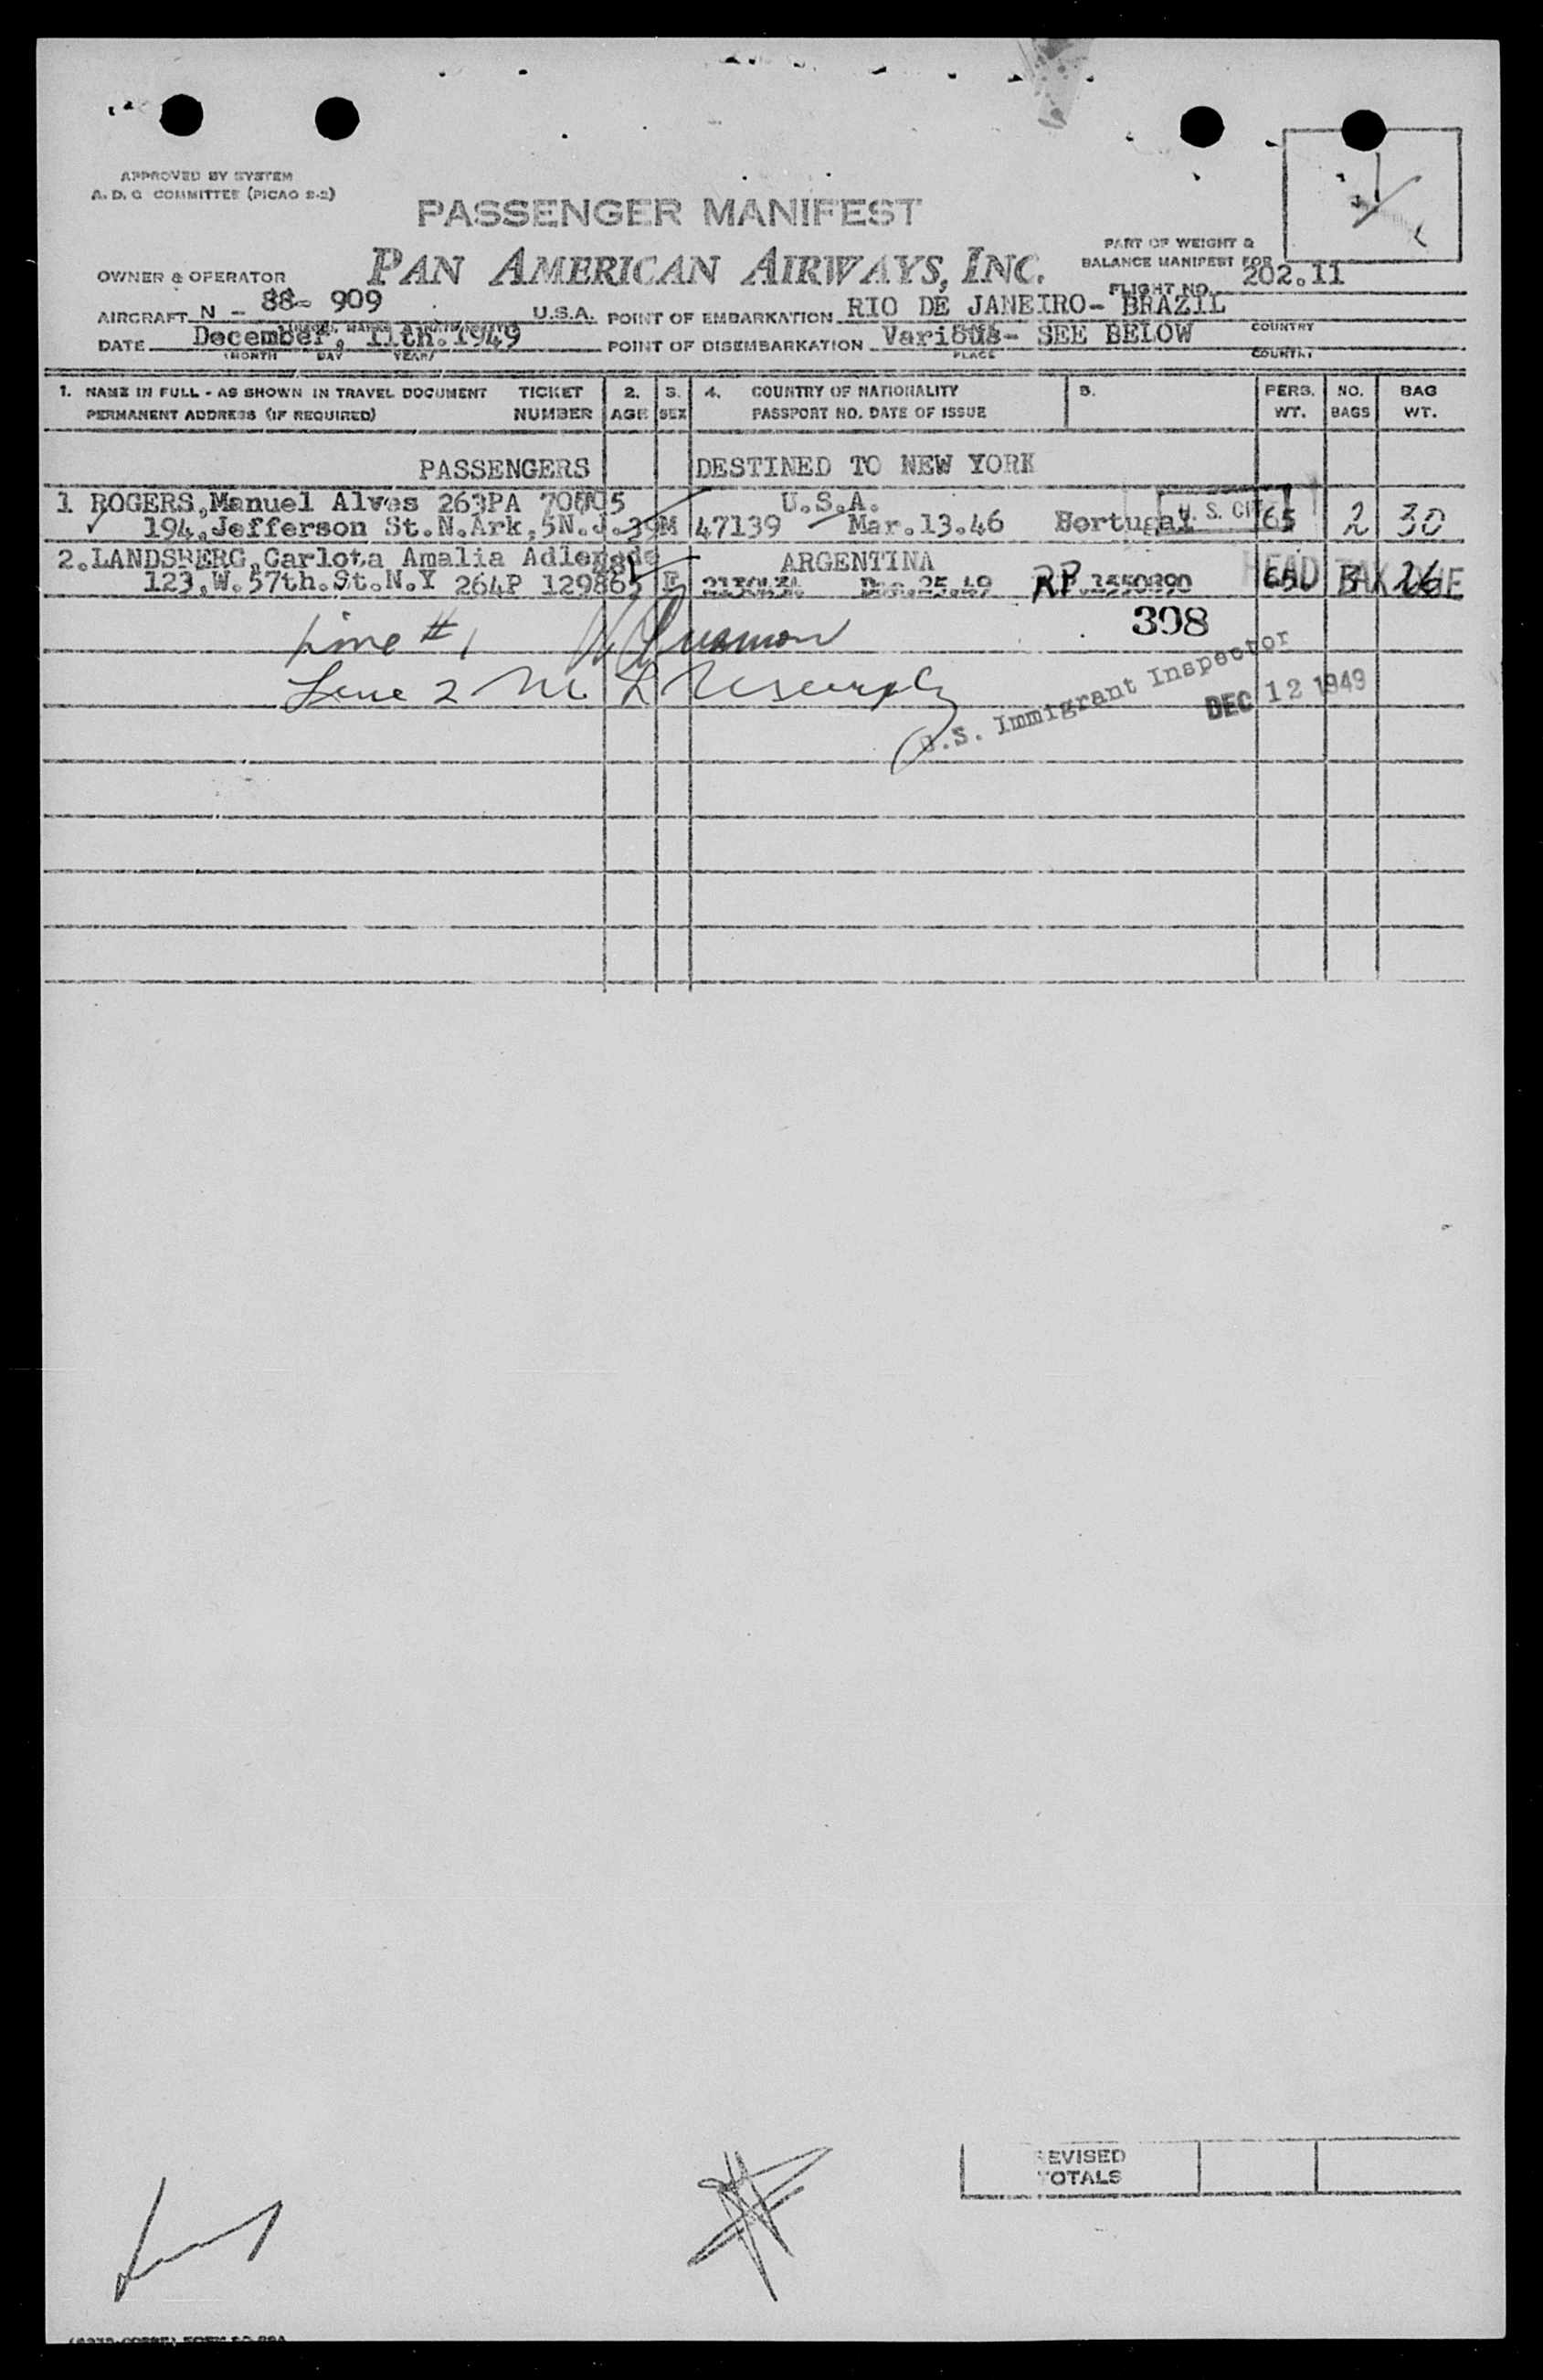 APPROVED BY SYSTEM
A. D. G COMMITTEE (PICAO S-2)
PASSENGER MANIFEST
PAN AMERICAN AIRWAYS, INC.
PART OF WEIGHT &
BALANCE MANIFEST FOR
FLIGHT NO. 202.II
OWNER & OPERATOR
AIRCRAFT N - 88- 909 U.S.A. POINT OF EMBARKATION RIO DE JANEIRO- BRAZIL
COUNTRY
DATE December, 11th.1949 POINT OF DISEMBARKATION Various- SEE BELOW
(MONTH DAY YEAR) PLACE COUNTRY
1. NAME IN FULL - AS SHOWN IN TRAVEL DOCUMENT TICKET 2. 3. 4. COUNTRY OF NATIONALITY 5. PERS. NO. BAG
PERMANENT ADDRESS (IF REQUIRED) NUMBER AGE SEX PASSPORT NO. DATE OF ISSUE WT. BAGS WT.
PASSENGERS DESTINED TO NEW YORK
1 ROGERS,Manuel Alves 263PA U.S.A. U. S. CIT
194,Jefferson St.N.Ark,5N.J. 39 M 47139 Mar.13.46 Portugal 65 2 30
2.LANDSBERG,Carlota Amalia ARGENTINA HEAD TAX
123,W.57th.St.N.Y 264P 129865 F 25.49 RP 1550890 26
308
Line # 1
Line 2 M. L
U.S. Immigrant Inspector
DEC 12 1949
REVISED
TOTALS